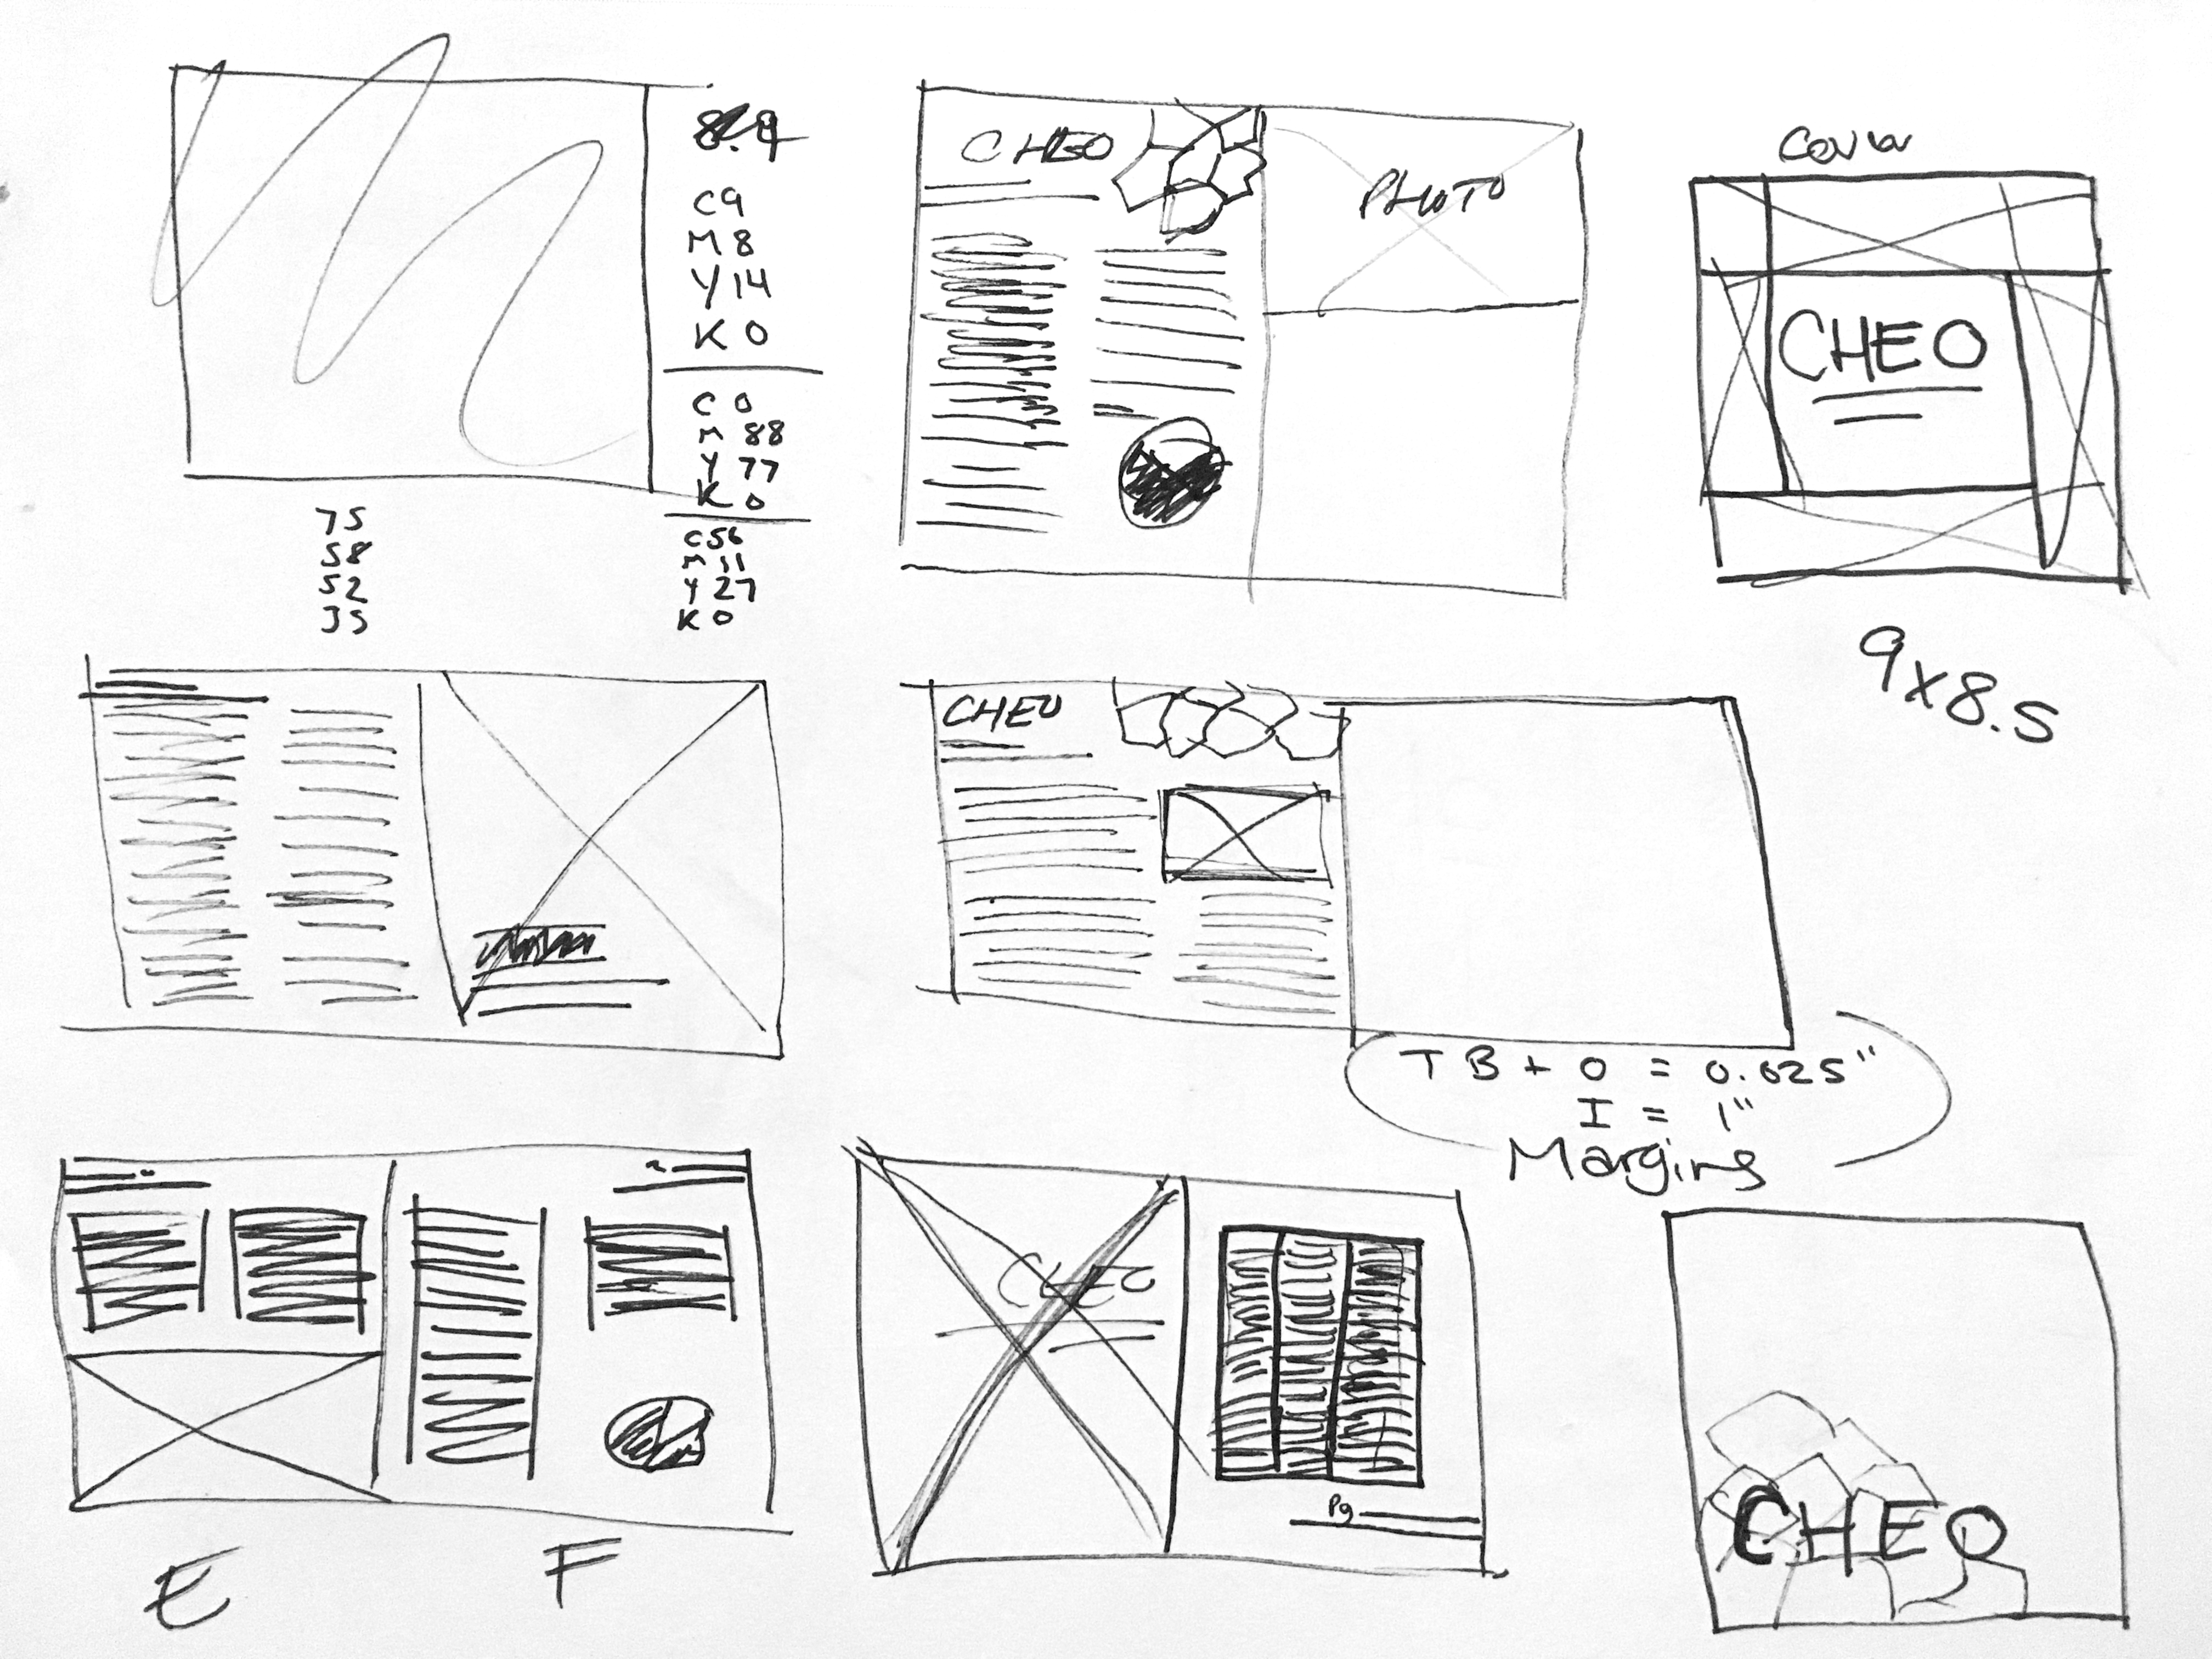 C9
M 8
Y 14
K 0
C 0
M 88
Y 77
K 0
C 56
M 11
Y 27
K 0
75
58
52
35
CHEO
PHOTO
Cover
CHEO
9x8.5
CHEO
T B + O = 0.625"
I = 1"
Margins
E
F
CHEO
Pg
CHEO